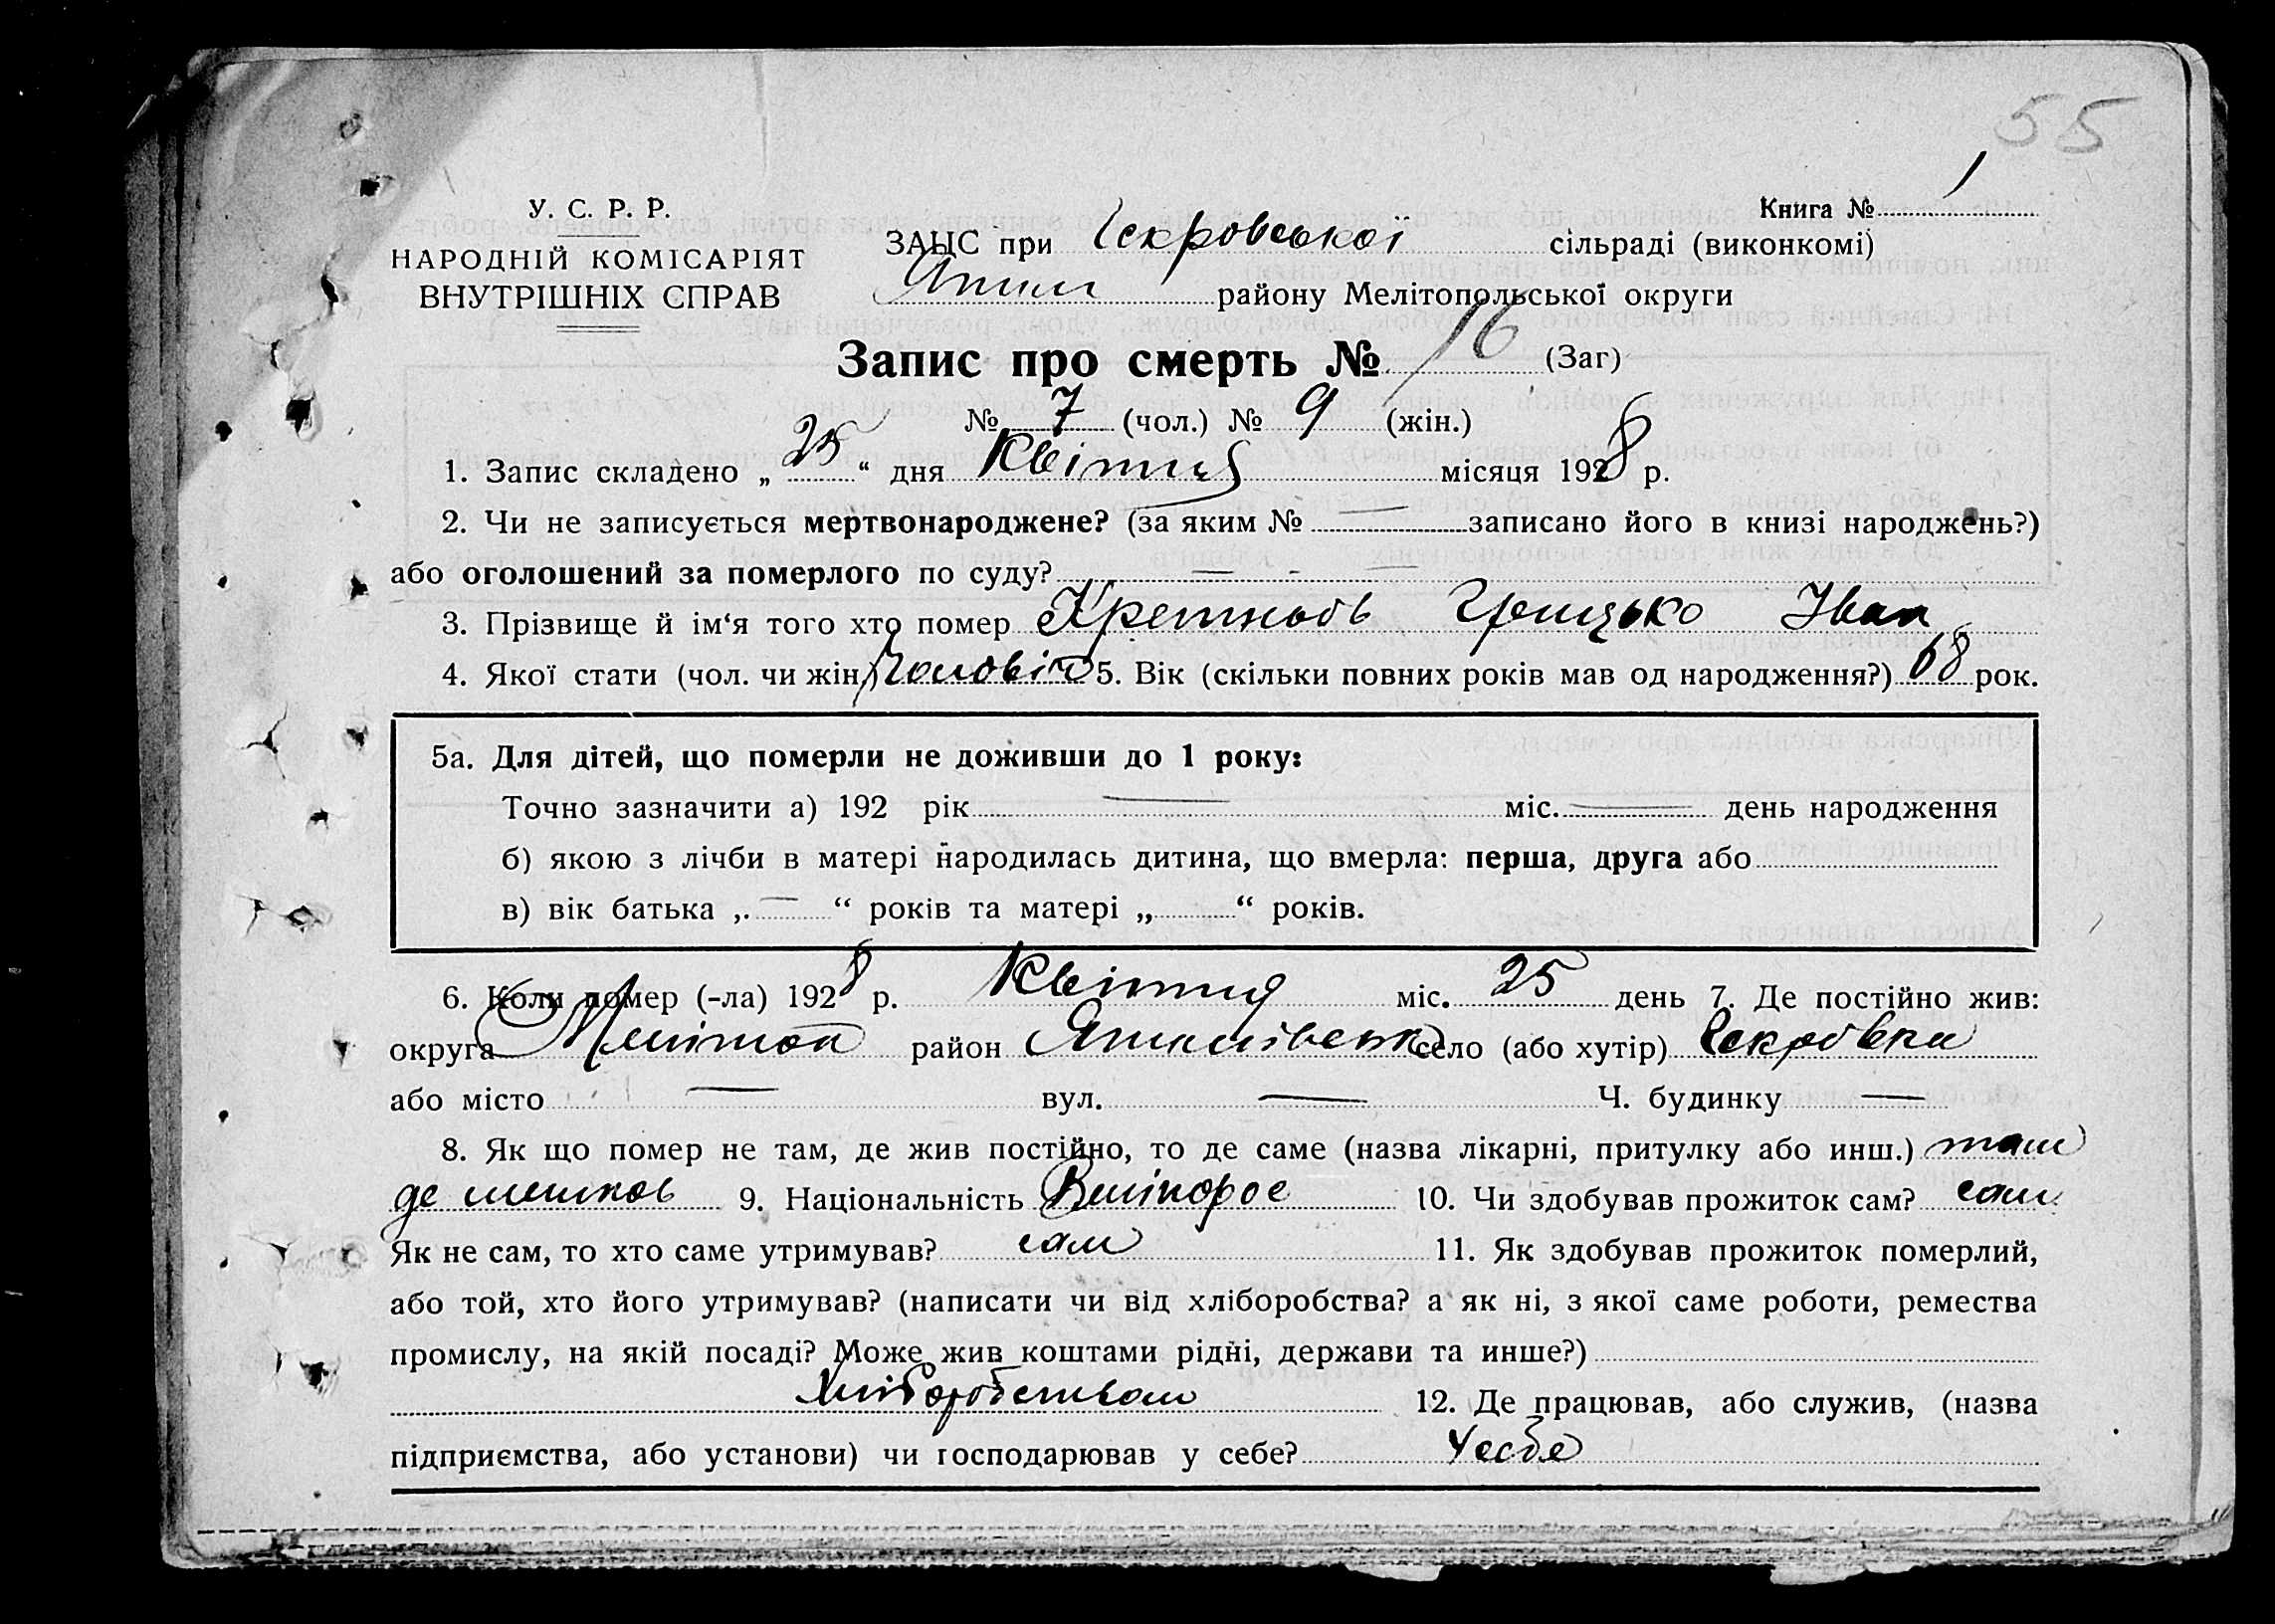 55
У. С. Р. Р.
НАРОДНІЙ КОМІСАРІЯТ
ВНУТРІШНІХ СПРАВ
Книга № 1
ЗАЦС при Іскровської сільраді (виконкомі)
району Мелітопольської округи
Запис про смерть № 16 (Заг)
№ 7 (чол.) № 9 (жін.)
1. Запис складено „ 25 “ дня Квітня місяця 1928 р.
2. Чи не записується мертвонароджене? (за яким № — записано його в книзі народжень?)
або оголошений за померлого по суду? — - —
3. Прізвище й ім‘я того хто помер Грицько Іван
4. Якої стати (чол. чи жін.) Чоловіч 5. Вік (скільки повних років мав од народження?) 68 рок.
5а. Для дітей, що померли не доживши до 1 року:
Точно зазначити а) 192 рік — міс. — день народження
б) якою з лічби в матері народилась дитина, що вмерла: перша, друга або
в) вік батька „ — “ років та матері „ “ років.
6. Коли помер (-ла) 1928 р. Квітня міс. 25 день 7. Де постійно жив:
округа Мелітоп район село (або хутір) Іскровка
або місто — вул. — Ч. будинку —
8. Як що помер не там, де жив постійно, то де саме (назва лікарні, притулку або инш.) там
де мешкав 9. Національність Велікорос 10. Чи здобував прожиток сам? сам
Як не сам, то хто саме утримував? сам 11. Як здобував прожиток померлий,
або той, хто його утримував? (написати чи від хліборобства? а як ні, з якої саме роботи, ремества
промислу, на якій посаді? Може жив коштами рідні, держави та инше?)
Хліборобством 12. Де працював, або служив, (назва
підприємства, або установи) чи господарював у себе? У себе